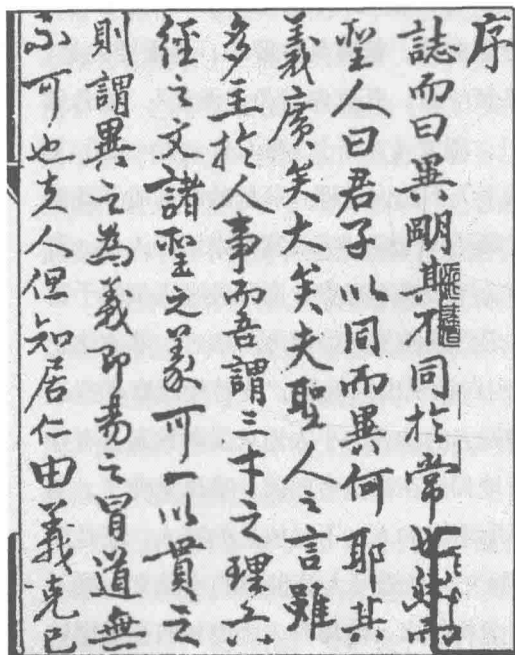 序
誌而曰無關耶不同於常也然
聖人曰君子以同而異何耶其
義廣矣大矣夫聖人之言雖
多主於人事而吾謂三才之理六
經之文諸聖之義可一以貫之
則謂異之為義即易之冒道無
不可也吉人但知居仁由義克己